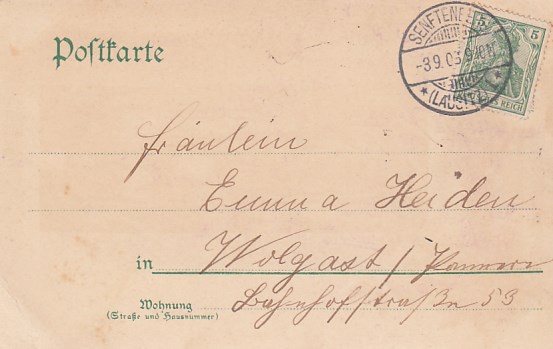 Postkarte
5 5
SENFTENBERG
-3.9.03.9-10V.
* (LAUSITZ) *
REICH
Fräulein
Emma Heiden
in Wolgast / Pommern
Wohnung
(Straße und Hausnummer)
Bahnhofstraße 53